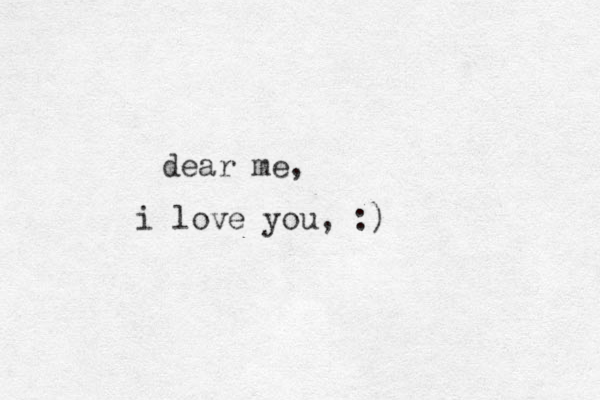 dear me,
i love you, :)